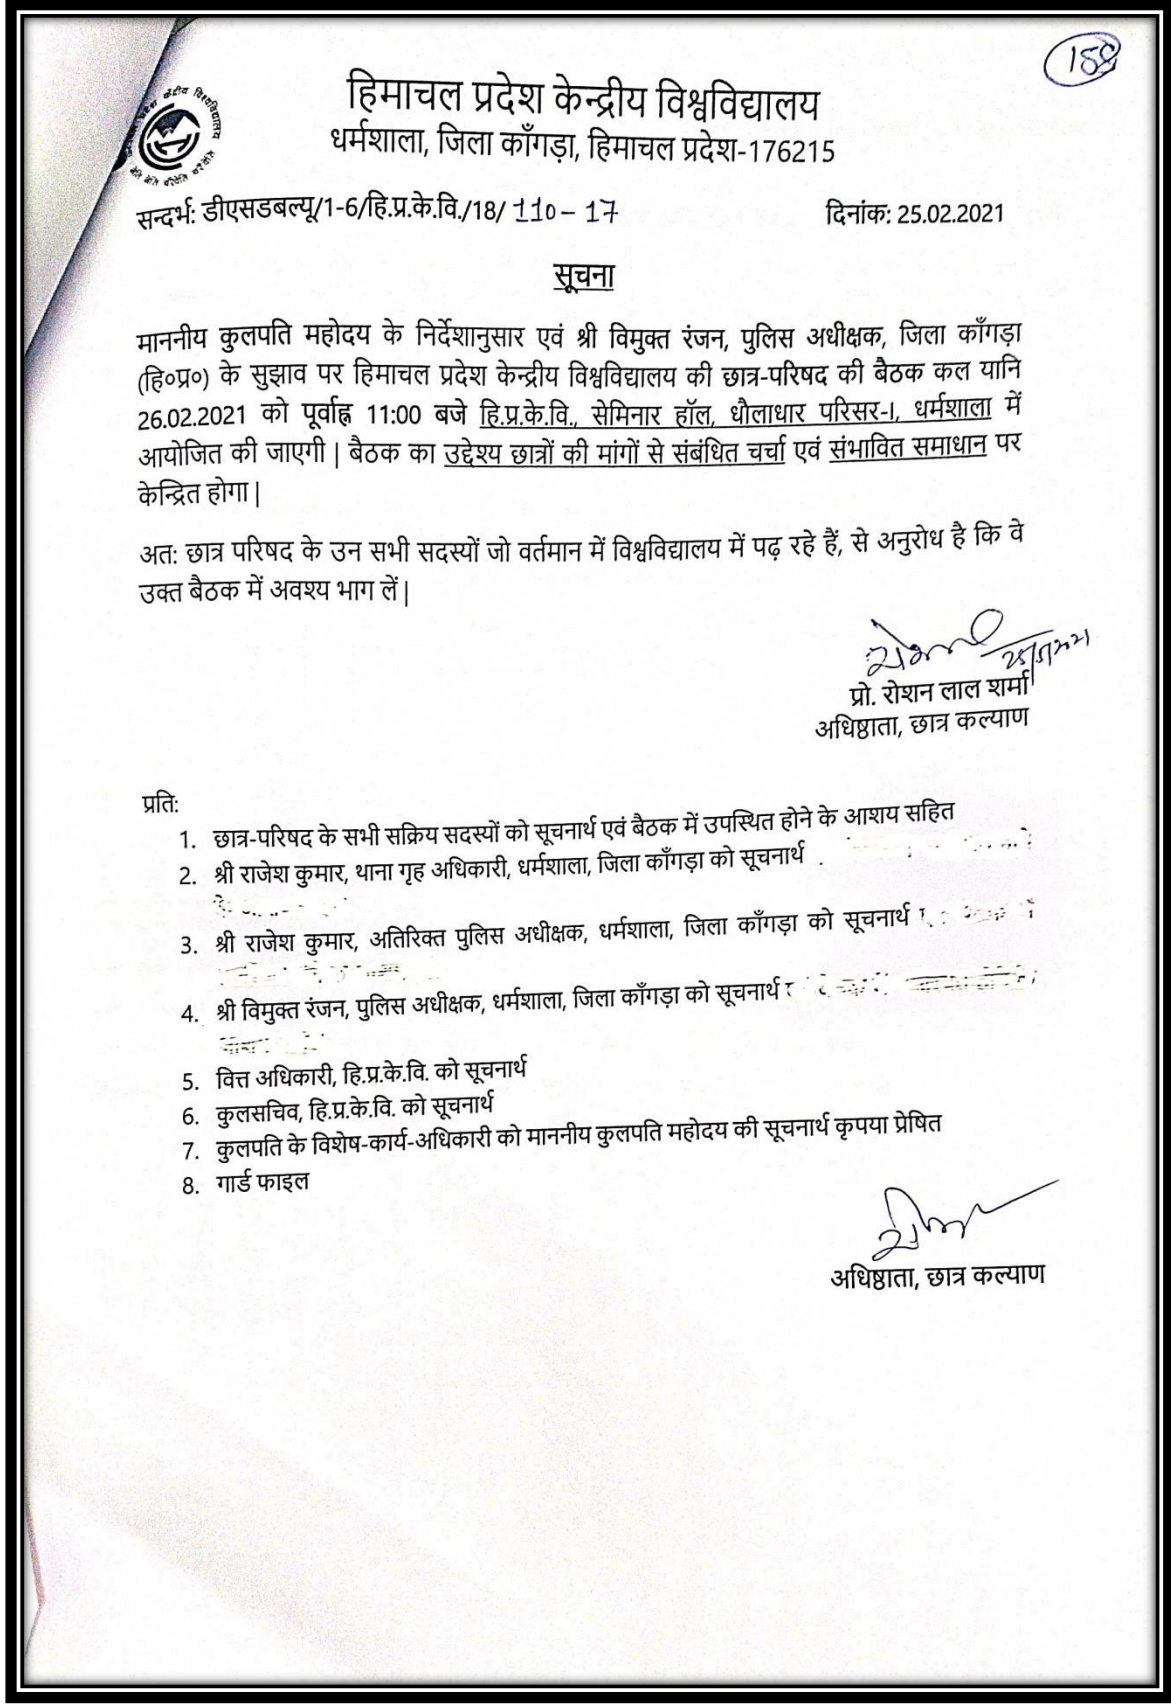 हिमाचल प्रदेश केन्द्रीय विश्वविद्यालय
धर्मशाला, जिला काँगड़ा, हिमाचल प्रदेश-176215
सन्दर्भ: डीएसडबल्यू/1-6/हि.प्र.के.वि./18/ 110-17 दिनांक: 25.02.2021
सूचना
माननीय कुलपति महोदय के निर्देशानुसार एवं श्री विमुक्त रंजन, पुलिस अधीक्षक, जिला काँगड़ा
(हि०प्र०) के सुझाव पर हिमाचल प्रदेश केन्द्रीय विश्वविद्यालय की छात्र-परिषद की बैठक कल यानि
26.02.2021 को पूर्वाह्न 11:00 बजे हि.प्र.के.वि., सेमिनार हॉल, धौलाधार परिसर-I, धर्मशाला में
आयोजित की जाएगी | बैठक का उद्देश्य छात्रों की मांगों से संबंधित चर्चा एवं संभावित समाधान पर
केन्द्रित होगा |
अत: छात्र परिषद के उन सभी सदस्यों जो वर्तमान में विश्वविद्यालय में पढ़ रहे हैं, से अनुरोध है कि वे
उक्त बैठक में अवश्य भाग लें |
प्रो. रोशन लाल शर्मा
अधिष्ठाता, छात्र कल्याण
प्रति:
1. छात्र-परिषद के सभी सक्रिय सदस्यों को सूचनार्थ एवं बैठक में उपस्थित होने के आशय सहित
2. श्री राजेश कुमार, थाना गृह अधिकारी, धर्मशाला, जिला काँगड़ा को सूचनार्थ
3. श्री राजेश कुमार, अतिरिक्त पुलिस अधीक्षक, धर्मशाला, जिला काँगड़ा को सूचनार्थ
4. श्री विमुक्त रंजन, पुलिस अधीक्षक, धर्मशाला, जिला काँगड़ा को सूचनार्थ
5. वित्त अधिकारी, हि.प्र.के.वि. को सूचनार्थ
6. कुलसचिव, हि.प्र.के.वि. को सूचनार्थ
7. कुलपति के विशेष-कार्य-अधिकारी को माननीय कुलपति महोदय की सूचनार्थ कृपया प्रेषित
8. गार्ड फाइल
अधिष्ठाता, छात्र कल्याण